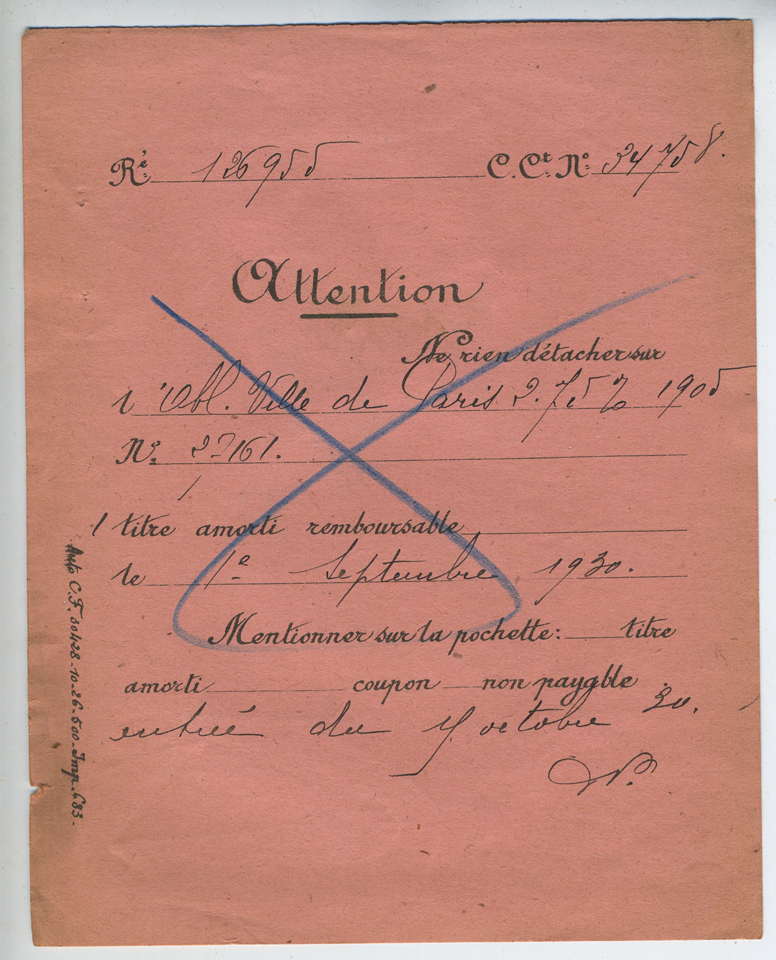 Ré 126955 C. Ct. No 34758.
Attention
Ne rien détacher sur
l'Obl. Ville de Paris 2.75% 1905
No
1 titre amorti remboursable
le 1e Septembre 1930.
Mentionner sur la pochette: titre
amorti coupon non payable
entrée du 7 octobre 30.
Auto C.F. 30428-10-26-500-Imp. 683-